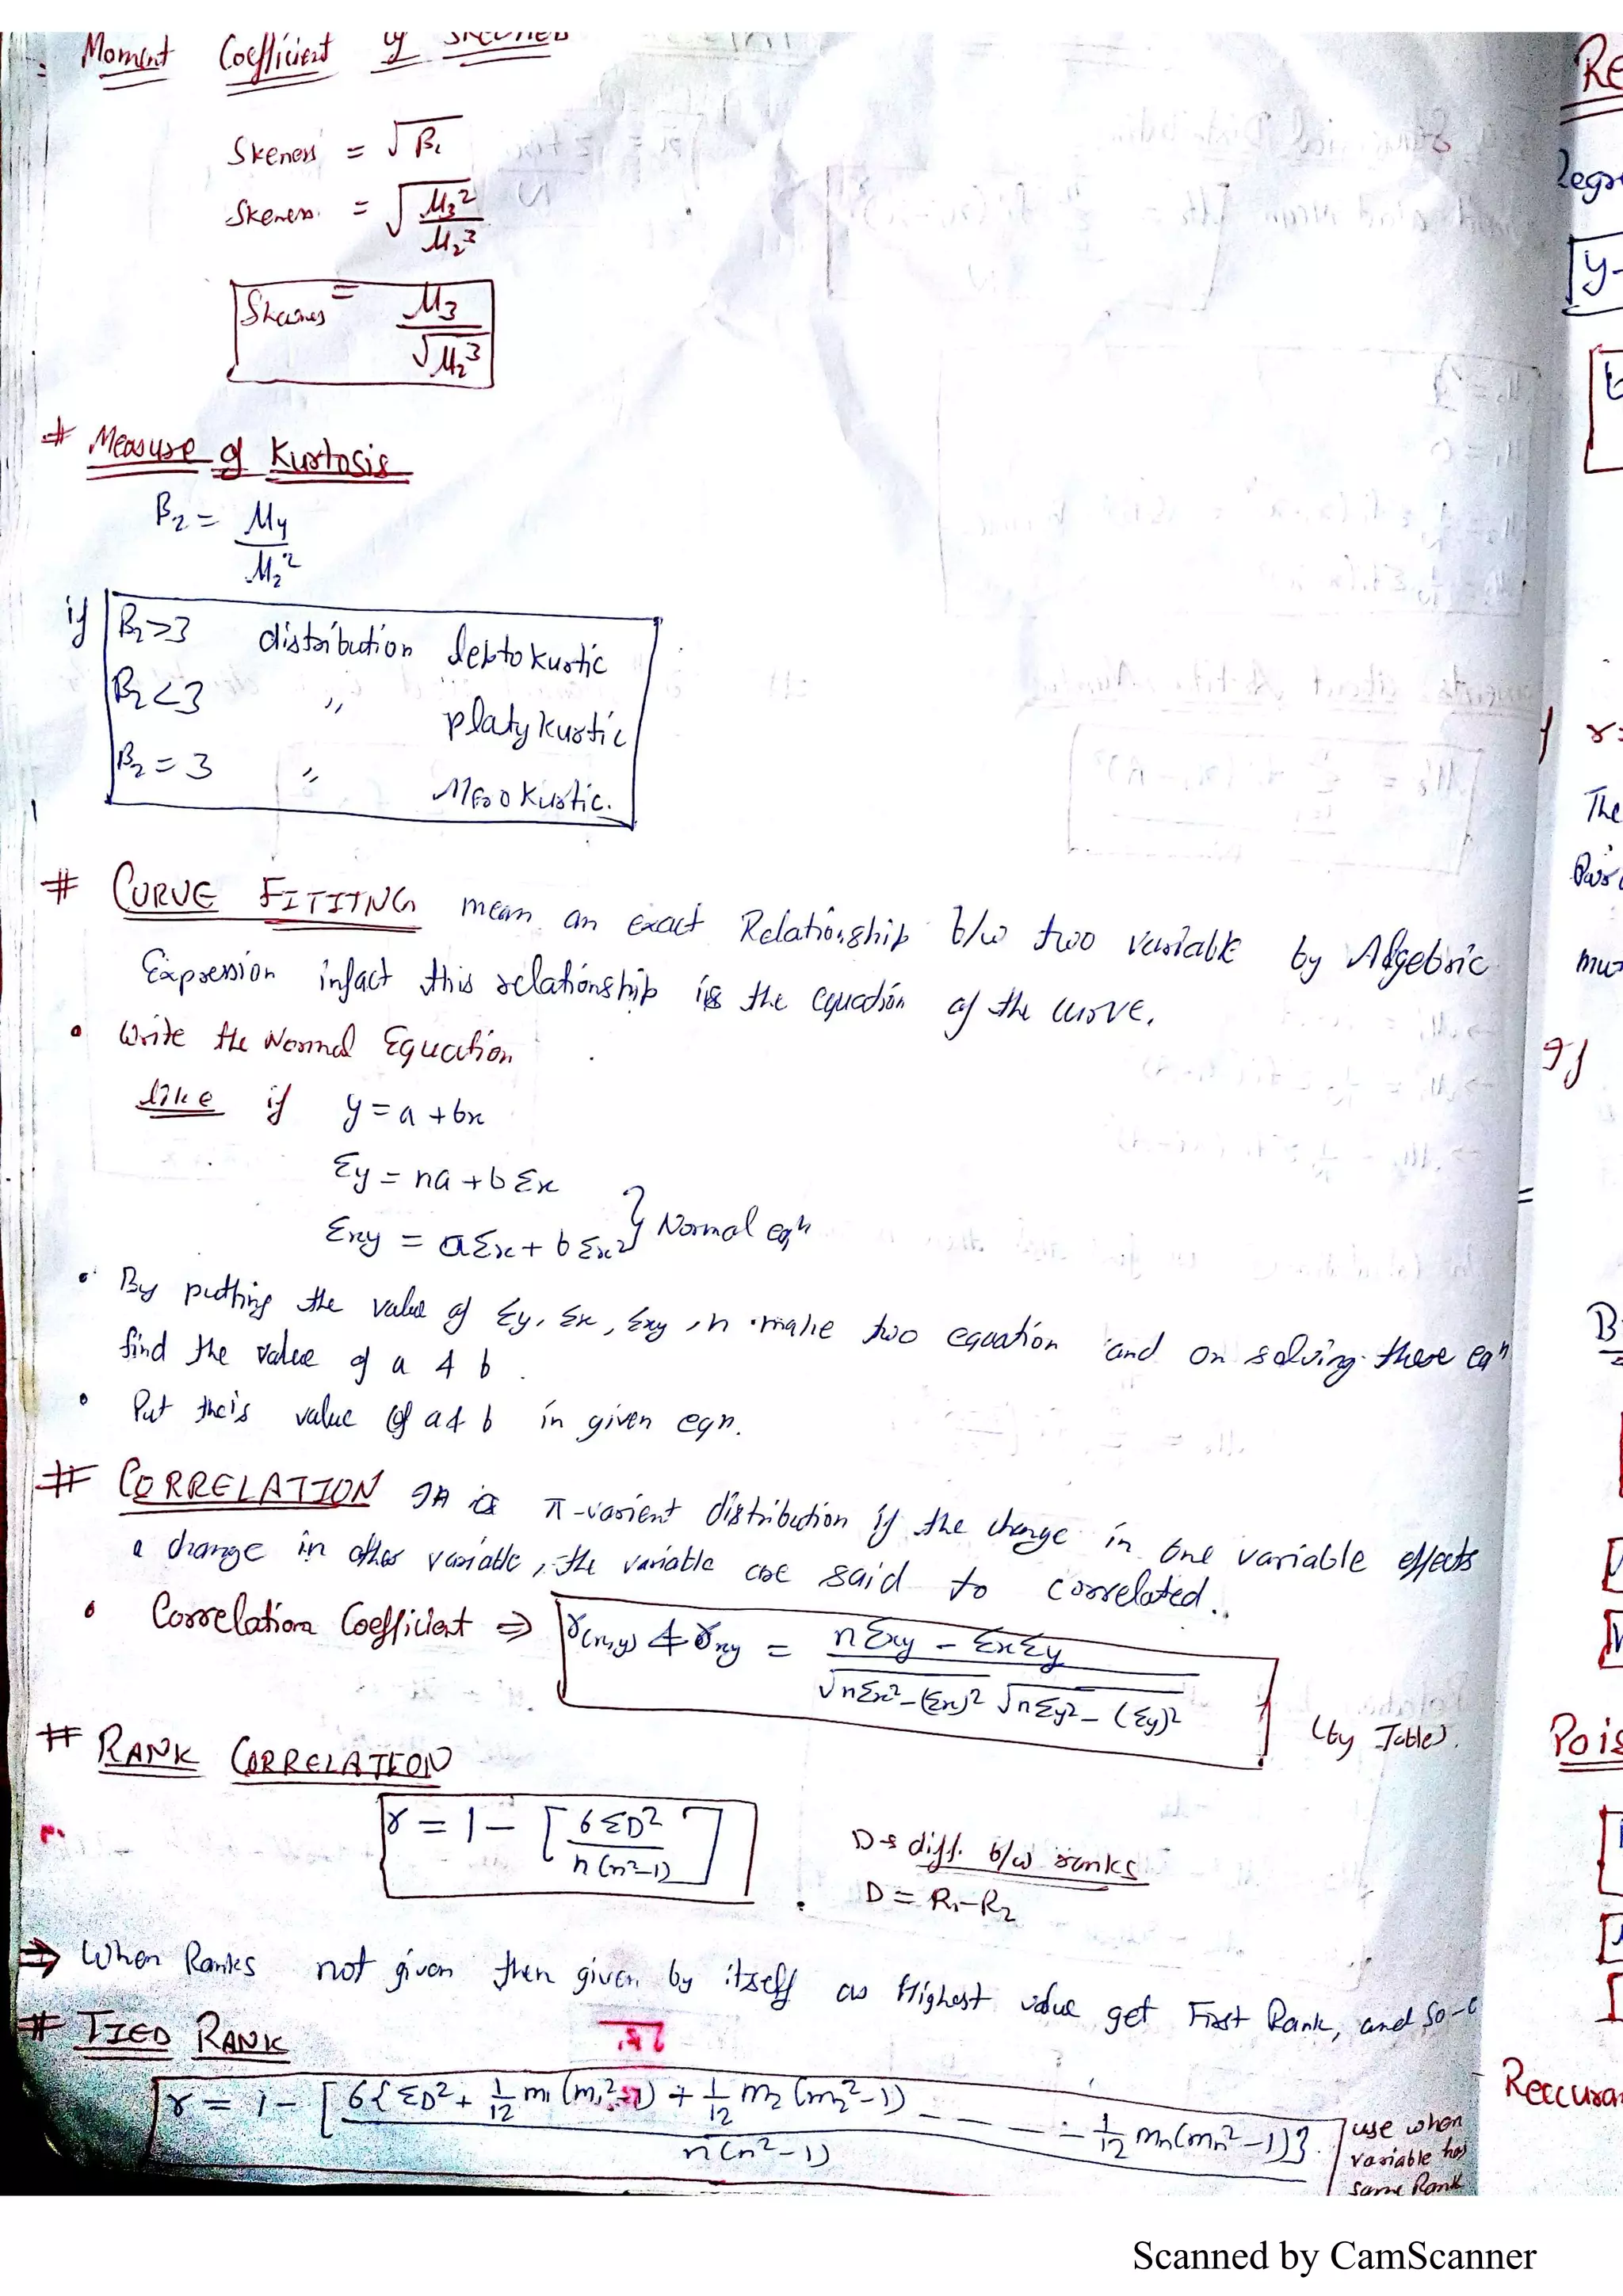 Moment Coefficient of
Skeness = √β₁
Skeness = √(μ₃²/μ₂³)
Skewnes = μ₃/√μ₂³
# Measure of Kurtosis
β₂ = μ₄/μ₂²
if β₂>3 distribution leptokurtic
β₂<3 ,, platykurtic
β₂ = 3 ,, Mesokurtic.
# CURVE FITITNG mean an exact Relationship b/w two variable by Algebric
Expression infact this relationship is the equation of the curve.
• Write the Normal Equation
like if y = a + bx
Σy = na + bΣx
Σxy = aΣx + bΣx² } Normal eqⁿ
• By putting the value of Σy, Σx, Σxy, n make two equation and on solving these eqⁿ
find the value of a & b.
• Put theis value of a & b in given eqn.
# CORRELATION In a π-varient distribution if the change in one variable effects
a change in other variable, the variable are said to correlated.
• Correlation Coefficient ⇒ r(x,y) & rxy = (nΣxy - ΣxΣy)/(√nΣx²-(Σx)² √nΣy²-(Σy)²)
(by Table).
# RANK CORRELATION
r = 1 - [6ΣD²/n(n²-1)]
D → diff. b/w ranks
D = R₁-R₂
⇒ When Ranks not given then given by itself as Highest value get First Rank, and so-
# TIED RANK
r = 1 - [6{ΣD² + 1/12 m₁(m₁²-1) + 1/12 m₂(m₂²-1) - - - - 1/12 mₙ(mₙ²-1)}/n(n²-1)
use when
variable has
same Rank
RE
Regr
y-
r=
The
mu
If
B
Pois
Reccura
Scanned by CamScanner